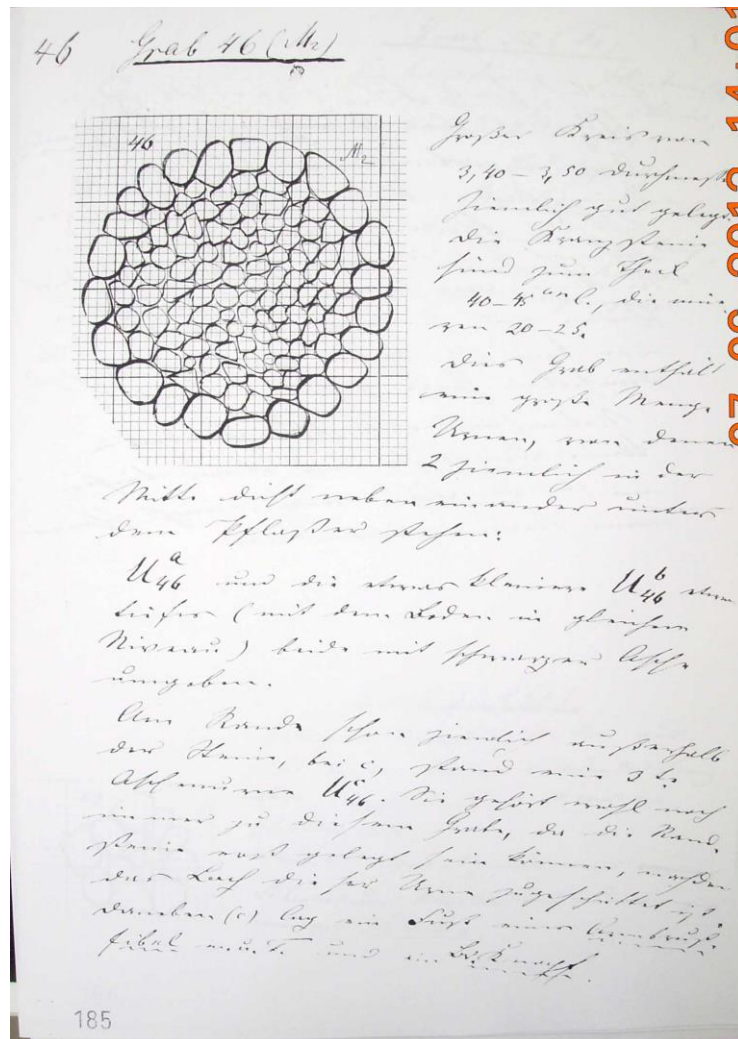 46 Grab 46 (M2)
46 M2
Großer Kreis von
3,40 – 3,50 Durchmesse
ziemlich gut gelegt.
Die Kranzsteine
sind zum Theil
40–45 cm l., die inne
ren 20–25.
Dies Grab enthält
eine große Menge
Urnen, von denen
2 ziemlich in der
Mitte dicht neben einander unter
dem Pflaster stehen:
U46a und die etwas kleinere U46b etwas
tiefer (mit dem Boden in gleichem
Niveau) beide mit schwarzer Asche
umgeben.
Am Rande schon ziemlich außerhalb
der Steine, bei c, stand eine 3te
Aschenurne U46c. Sie gehört wohl noch
immer zu diesem Grabe, da die Rand
steine erst gelegt sein können, nachdem
das Loch dieser Urne zugeschüttet ist.
Daneben (c) lag ein Fuß einer Armbrust
fibel und ein
185